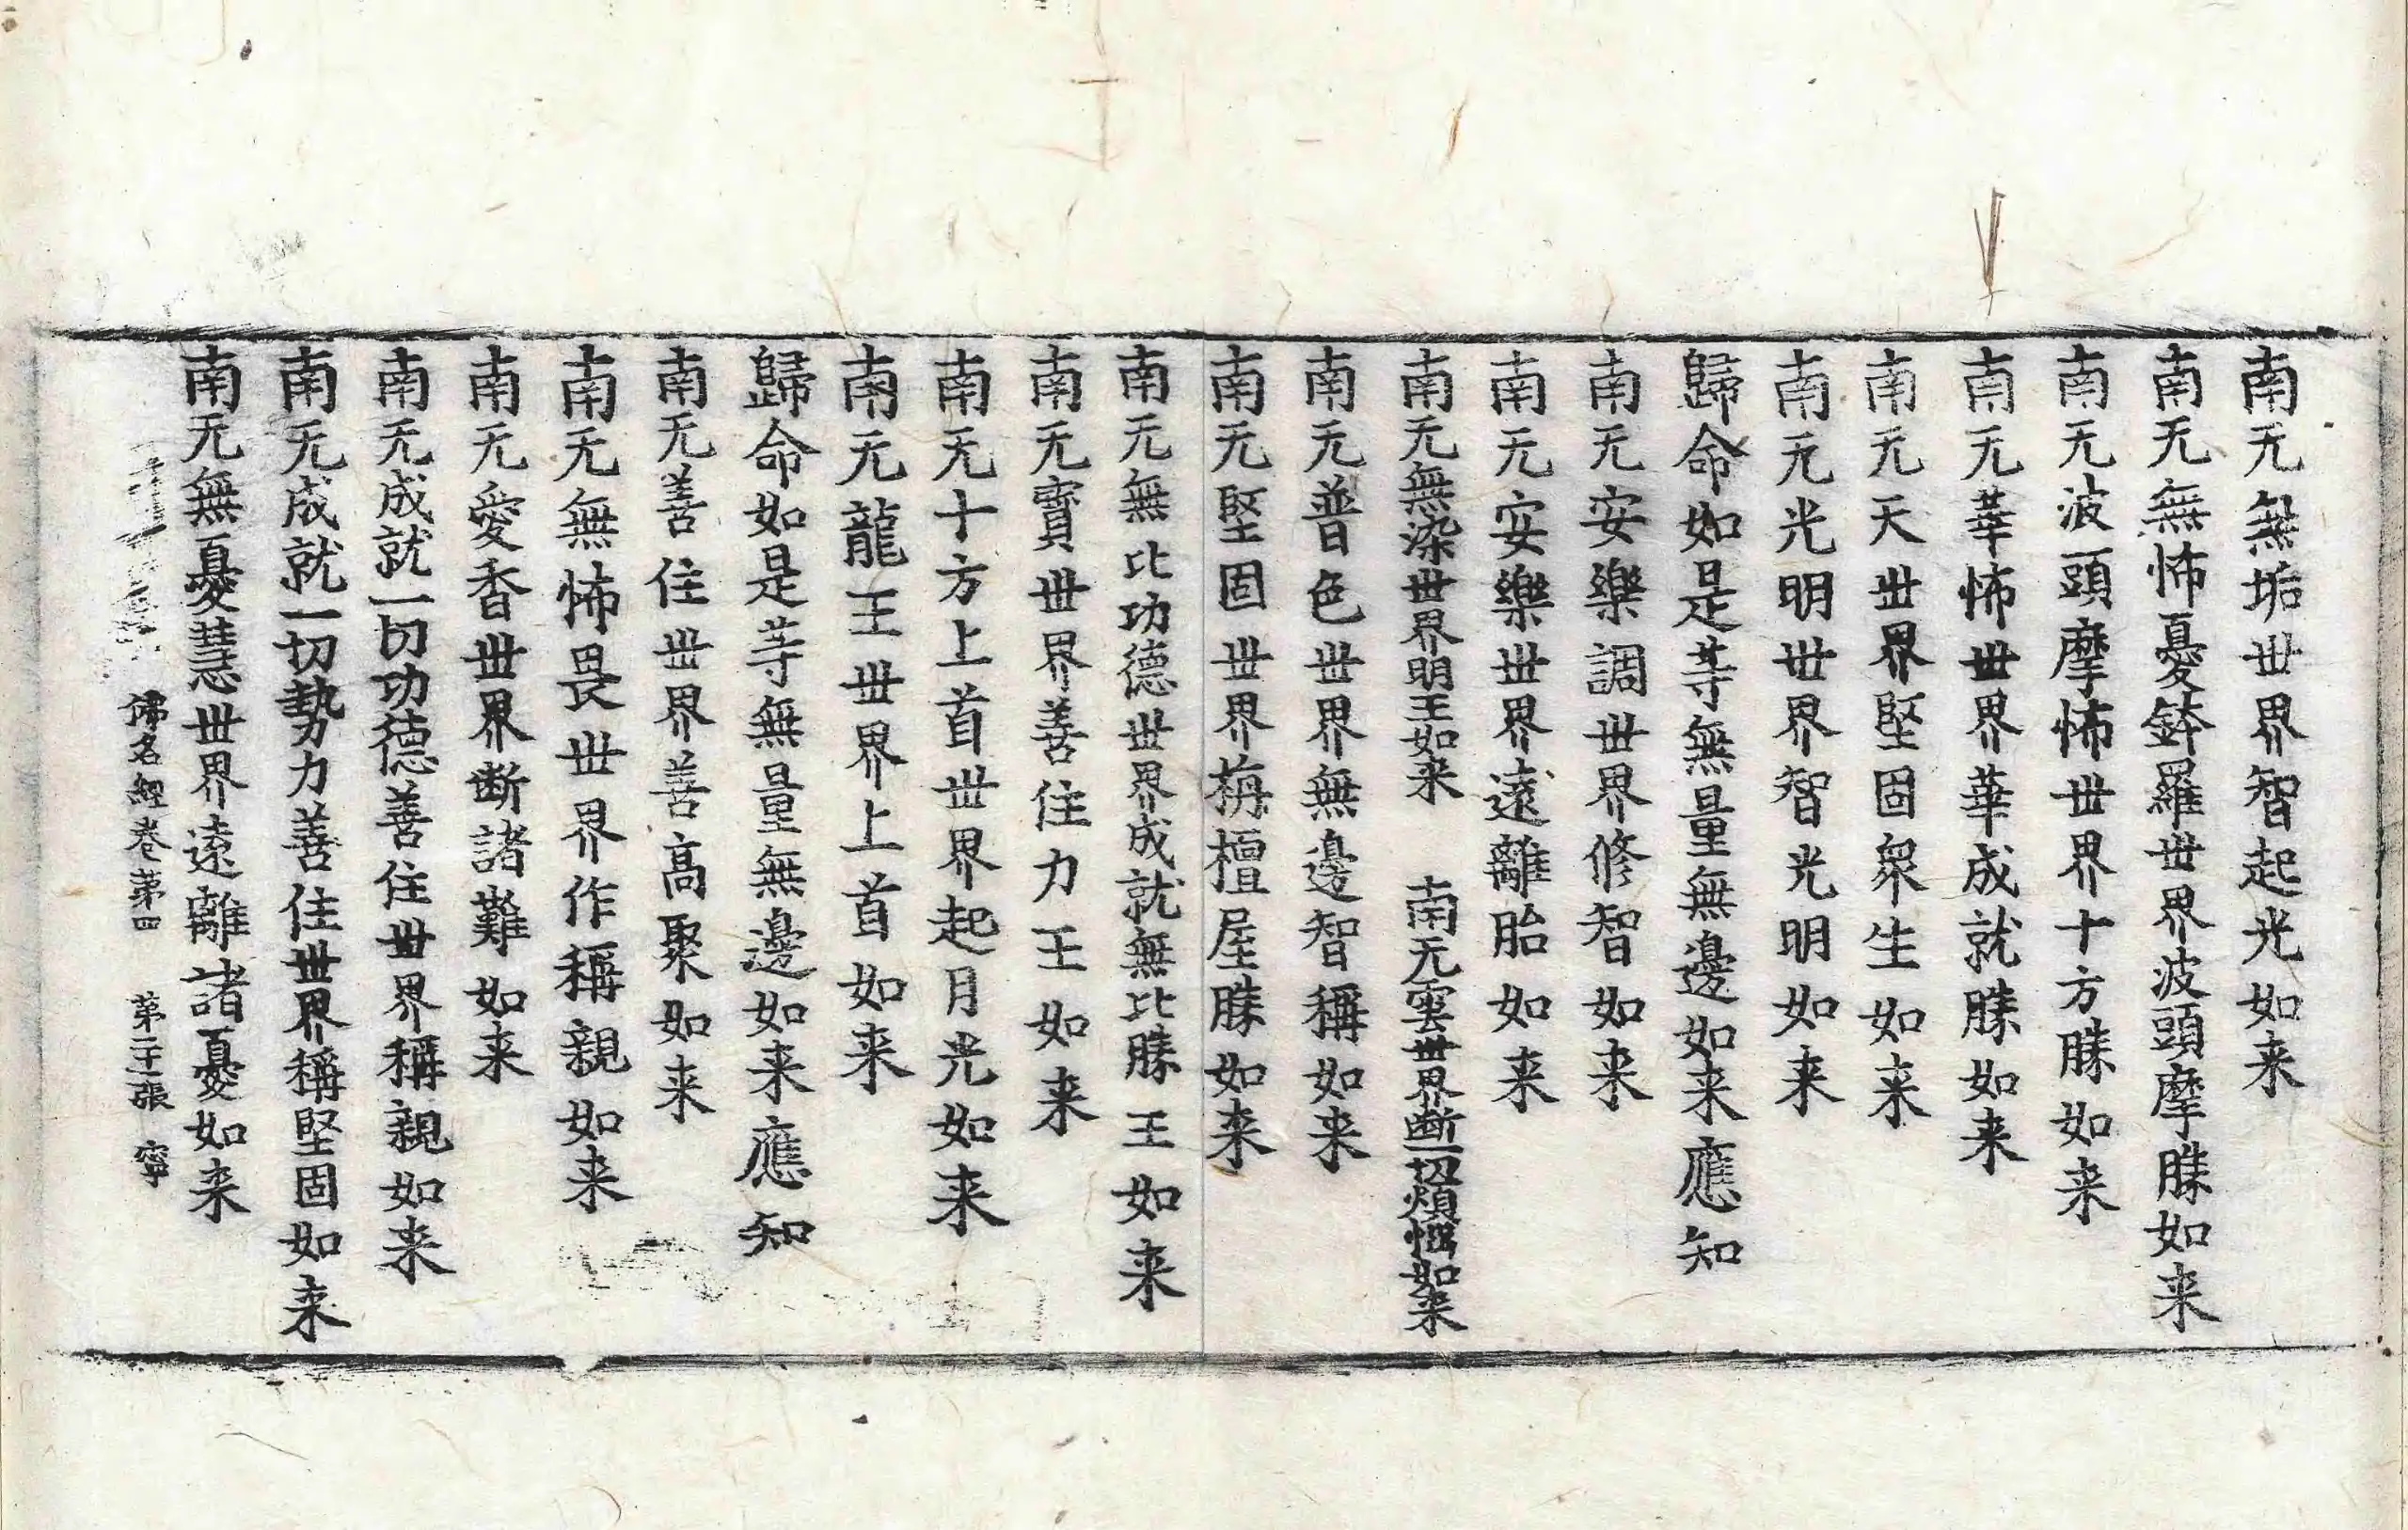 南无無垢世界智起光如来
南无無怖憂鉢羅世界波頭摩勝如来
南无波頭摩怖世界十方勝如来
南无華怖世界華成就勝如来
南无天世界堅固衆生如来
南无光明世界智光明如来
歸命如是等無量無邊如来應知
南无安樂調世界修智如来
南无安樂世界遠離胎如来
南无無染世界明王如来　南无雲世界断一切煩惱如来
南无普色世界無邊智稱如来
南无堅固世界栴檀屋勝如来
南无無比功德世界成就無比勝王如来
南无寶世界善住力王如来
南无十方上首世界起月光如来
南无龍王世界上首如来
歸命如是等無量無邊如来應知
南无善住世界善高聚如来
南无無怖畏世界作稱親如来
南无愛香世界断諸難如来
南无成就一切功德善住世界稱親如来
南无成就一切勢力善住世界稱堅固如来
南无無憂慧世界遠離諸憂如来
佛名經卷苐四　苐二十二張　寧